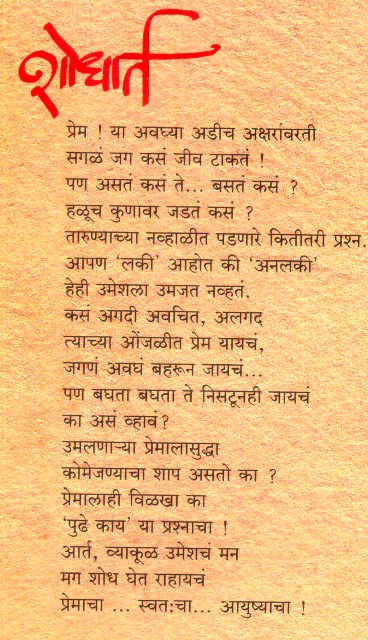 शोधार्त
प्रेम ! या अवघ्या अडीच अक्षरांवरती
सगळं जग कसं जीव टाकतं !
पण असतं कसं ते... बसतं कसं ?
हळूच कुणावर जडतं कसं ?
तारुण्याच्या नव्हाळीत पडणारे कितीतरी प्रश्न.
आपण ‘लकी’ आहोत की ‘अनलकी’
हेही उमेशला उमजत नव्हतं.
कसं अगदी अवचित, अलगद
त्याच्या ओंजळीत प्रेम यायचं,
जगणं अवघं बहरून जायचं...
पण बघता बघता ते निसटूनही जायचं
का असं व्हावं?
उमलणाऱ्या प्रेमालासुद्धा
कोमेजण्याचा शाप असतो का ?
प्रेमालाही विळखा का
‘पुढे काय’ या प्रश्नाचा !
आर्त, व्याकूळ उमेशचं मन
मग शोध घेत राहायचं
प्रेमाचा ... स्वतःचा... आयुष्याचा !